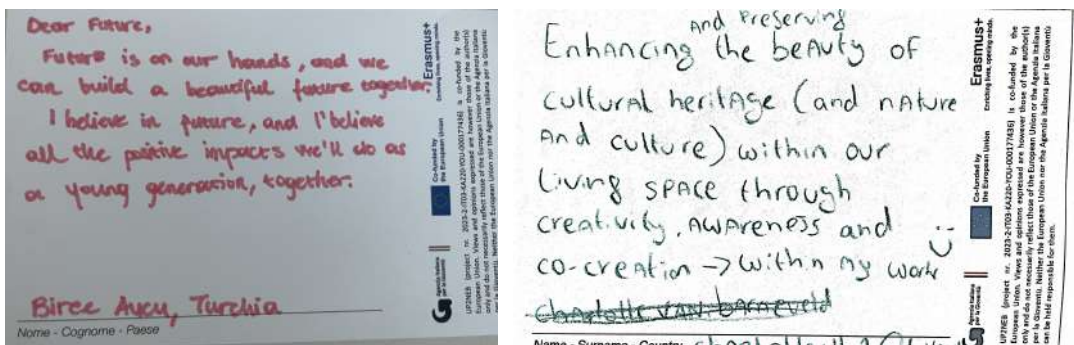 Dear Future,
Future is on our hands, and we
can build a beautiful future together.
I believe in future, and I believe
all the positive impacts we'll do as
a young generation, together.
Birce Avcu, Turchia
Nome - Cognome - Paese
Agenzia Italiana
per la Gioventù
Co-funded by
the European Union
Erasmus+
Enriching lives, opening minds.
UP2NEB (project nr. 2023-2-IT03-KA220-YOU-000177436) is co-funded by the
European Union. Views and opinions expressed are however those of the author(s)
only and do not necessarily reflect those of the European Union or the Agenzia Italiana
per la Gioventù. Neither the European Union nor the Agenzia Italiana per la Gioventù
And Preserving
Enhancing the beauty of
cultural heritage (and nature
and culture) within our
living space through
creativity, awareness and
co-creation → within my work :)
Charlotte VAN BARNEVELD
Name - Surname - Country
Agenzia Italiana
per la Gioventù
Co-funded by
the European Union
Erasmus+
Enriching lives, opening minds.
UP2NEB (project nr. 2023-2-IT03-KA220-YOU-000177436) is co-funded by the
European Union. Views and opinions expressed are however those of the author(s)
only and do not necessarily reflect those of the European Union or the Agenzia Italiana
per la Gioventù. Neither the European Union nor the Agenzia Italiana per la Gioventù
can be held responsible for them.